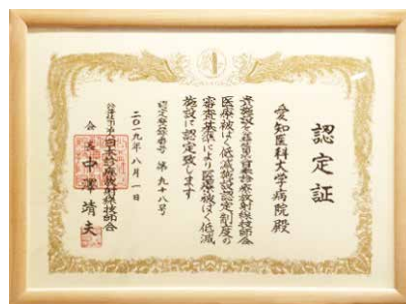 認定証
愛知医科大学病院殿
貴施設を公益社団法人日本診療放射線技師会
医療被ばく低減施設認定制度の
審査基準により医療被ばく低減
施設に認定致します
認定登録番号 第九十八号
二〇一九年八月一日
公益社団法人日本診療放射線技師会
会長中澤靖夫